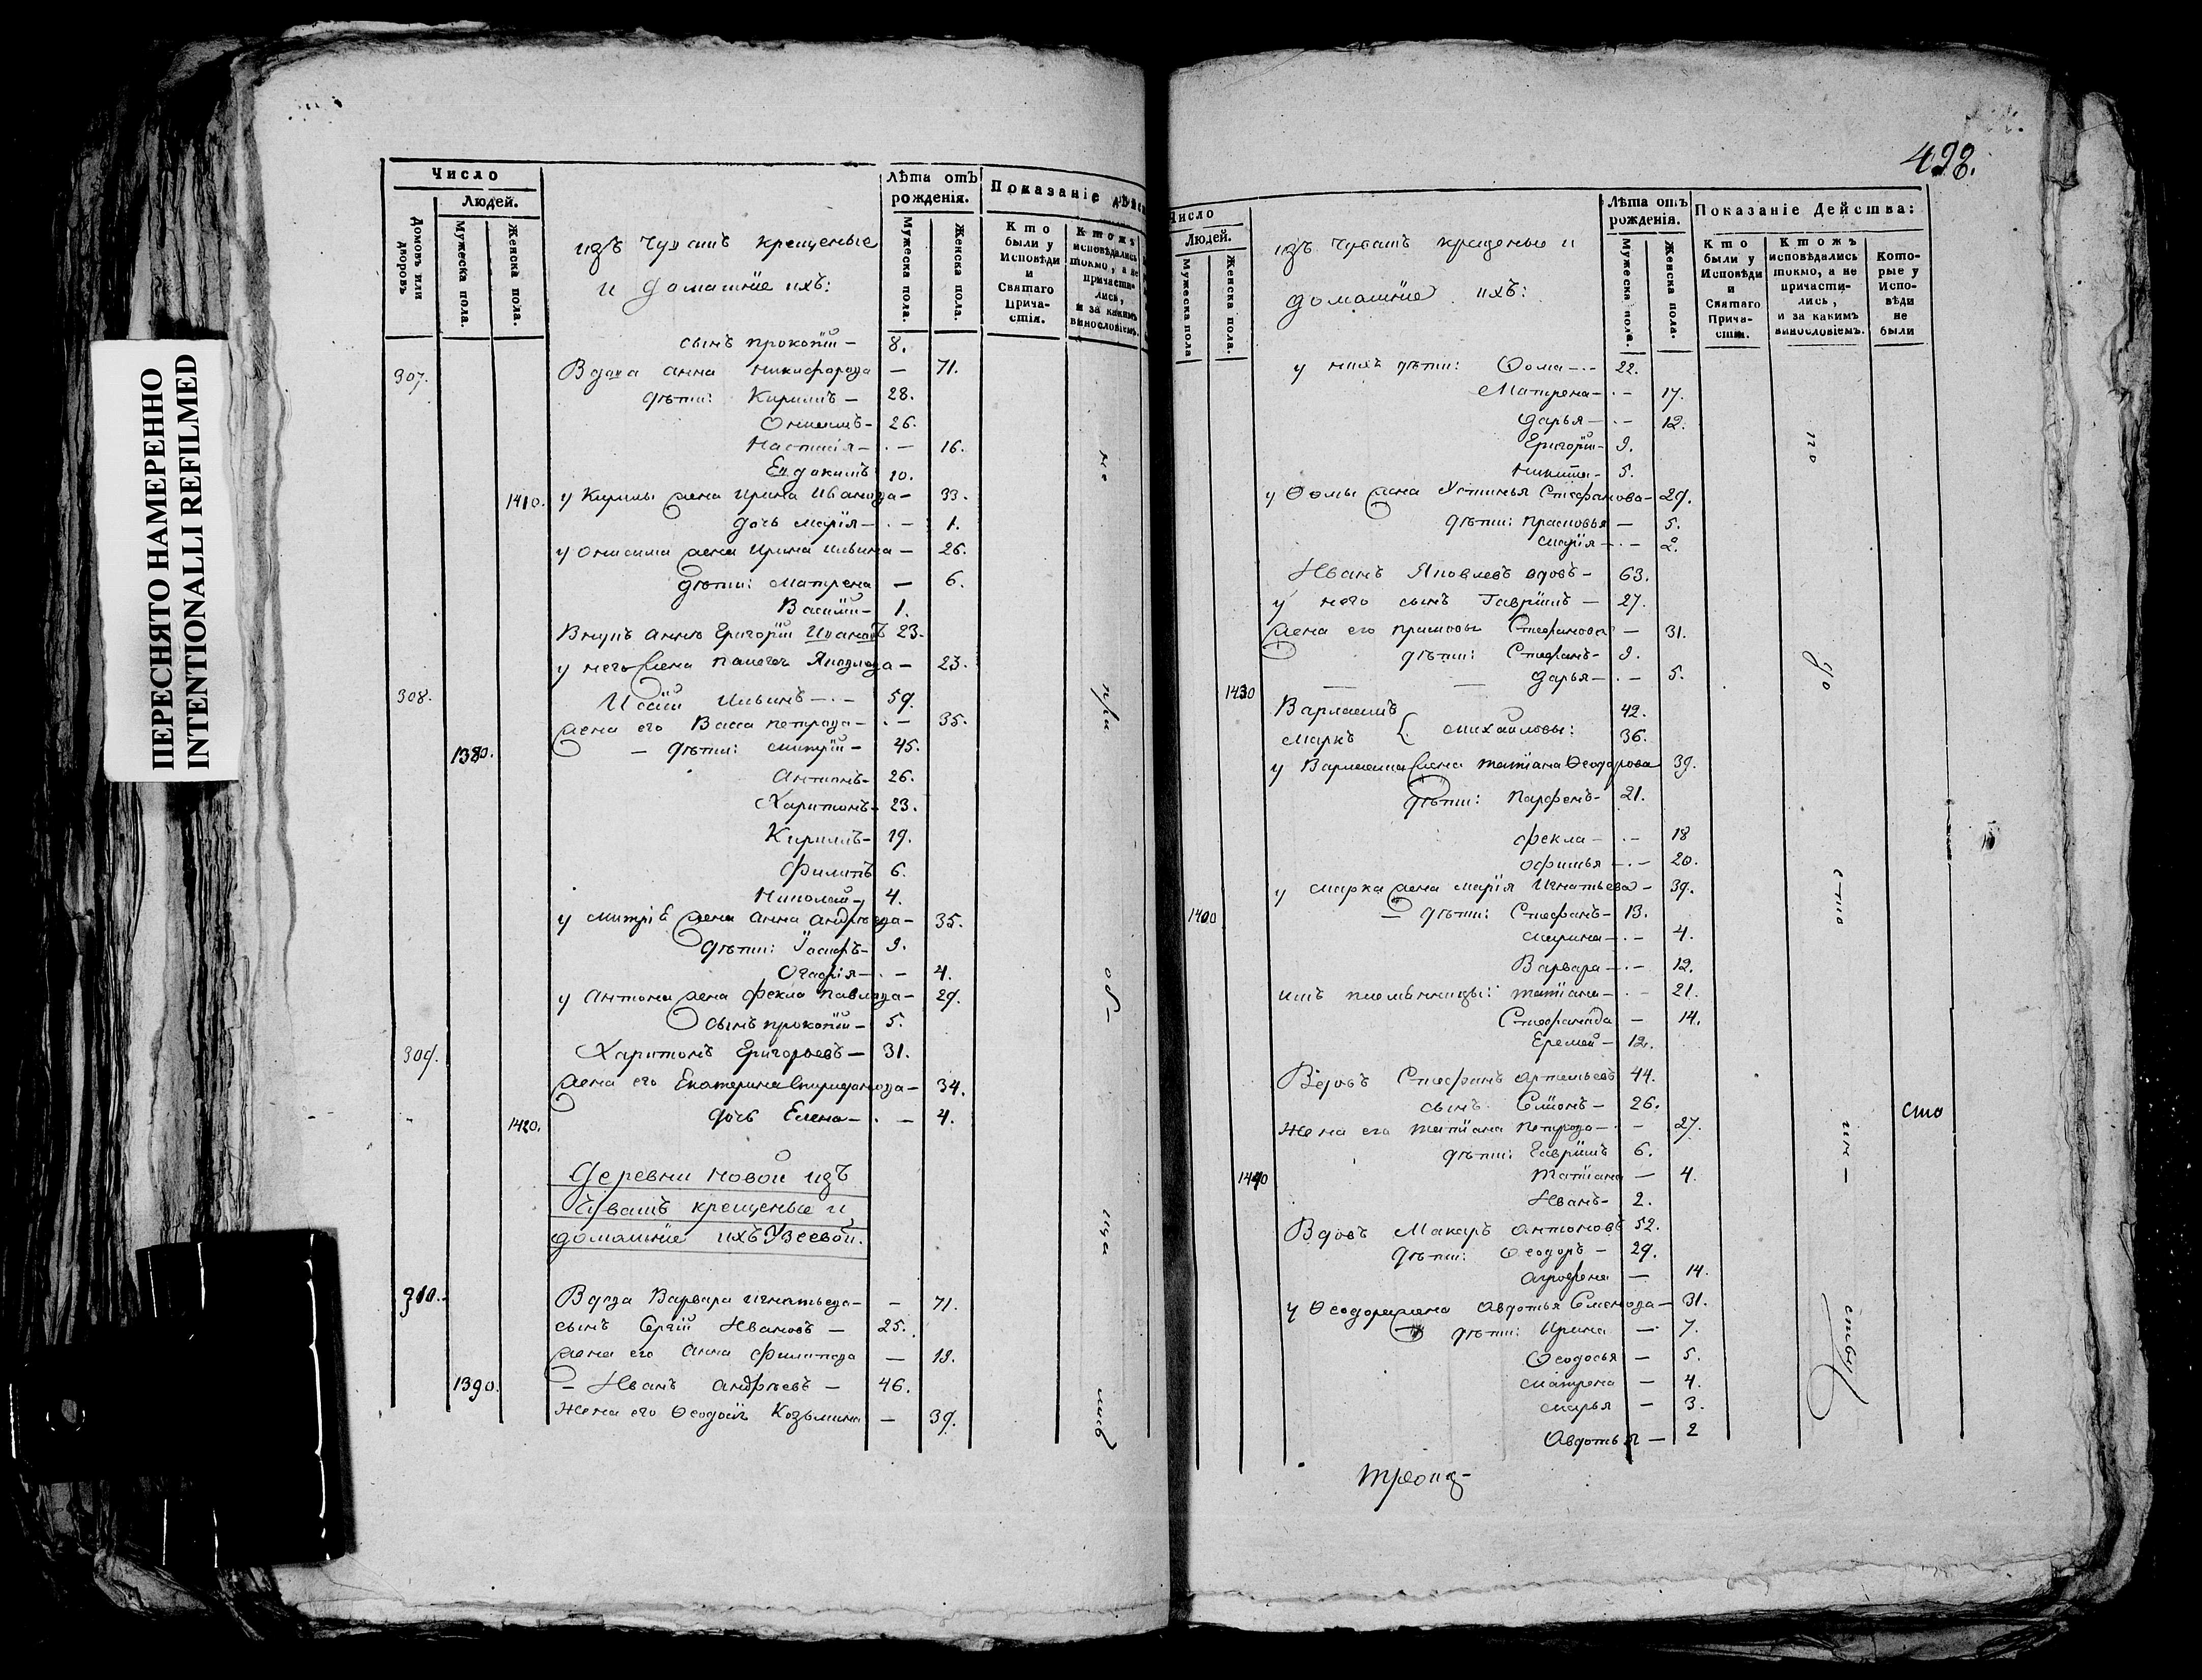 ПЕРЕСНЯТО НАМЕРЕННО
INTENTIONALLI REFILMED
Число
Людей.
Домовъ или дворовъ
Мужеска пола.
Женска пола.
изъ Чувашъ крещеные
и домашніе ихъ:
Лѣта отъ рожденія.
Мужеска пола.
Женска пола.
Показаніе дѣйст
Кто были у Исповѣди и Святаго Прича-стія.
Ктожъ исповѣдались токмо, а не причасти-лись, и за какимъ винословіемъ.
сынъ прокопій – 8.
307. Вдова анна никифорова — 71.
дѣти: Кирилъ – 28.
Онисимъ – 26.
Настасія – . – 16.
Евдокимъ 10.
1410. у Кирилы жена Ирина Иванова – 33.
дочь марія – . – 1.
у онисима жена Ирина ильина – 26.
дѣти: матрена – 6.
Василій – 1.
Внукъ анны Григорій Ивановъ 23.
у него жена пелагея Яковлева – 23.
308. Ильинъ – . – 59.
жена его Васса петрова – . – 35.
1380. – дѣти: митрій – 45.
Антонъ – 26.
Харитонъ – 23.
Кирилъ – 19.
Филипъ 6.
Николай – 4.
у митрія жена анна андрѣева – 35.
дѣти: Іосифъ – 9.
Огафія – . – 4.
у антона жена фекла павлова – 29.
сынъ прокопій – 5.
309. Харитонъ Григорьевъ – 31.
жена его Екатерина Спиридонова – 34.
1420. дочь Елена – . – 4.
Деревни новой изъ
Чувашъ крещеные и
домашніе ихъ Узеевой.
310. Вдова Варвара игнатьева – – 71.
сынъ Сергій Ивановъ – 25.
жена его анна филипова — 19.
1390. – Иванъ андрѣевъ – 46.
Жена его Ѳеодосія Козьмина — 39.
не
при
об-
ща
лись
498.
Число
Людей.
Мужеска пола
Женска пола.
изъ чувашъ крещеные и
домашніе ихъ:
Лѣта отъ рожденія.
Мужеска пола.
Женска пола.
Показаніе Дейсшва:
Кто были у Исповѣди и Святаго Прича-стія.
Ктожъ исповѣдались токмо, а не причасти-лись, и за какимъ винословіемъ.
Кото-рые у Испо-вѣди не были
у нихъ дѣти: Ѳома – . – 22.
Матрена – . – 17.
дарья – . – 12.
Григорій – 9.
никита – 5.
у Ѳомы жена Устинья Стефанова – 29.
дѣти: прасковья — 5.
марія – . – 2.
Иванъ Яковлевъ вдовъ – 63.
у него сынъ Гаврилъ — 27.
жена его прасковья Стефанова — 31.
дѣти: Стефанъ – 9.
дарья – . – 5.
1430
Варламъ 42.
маркъ { михайловы: 36.
у Варлама жена татіана Ѳеодорова 39.
дѣти: парфенъ – 21.
фекла – . – 18
офимья – . – 20.
у марка жена марія Игнатьева – 39.
1400 – дѣти: Стефанъ – 13.
марина – . – 4.
Варвара – . – 12.
ихъ племянницы: татіана – . – 21.
Стефанида — 14.
Еремей – 12.
Вдовъ Стефанъ артемьевъ 44.
сынъ Симіонъ – 26.
Жена его татіана петрова – . – 27.
дѣти: Гаврилъ 6.
1440 татіана — 4.
Иванъ – 2.
Вдовъ Макаръ антоновъ 52.
дѣти: Ѳеодоръ – 29.
агрофена — 14.
у Ѳеодора жена авдотья Семенова – 31.
дѣти: Ирина — 7.
Ѳеодосья — 5.
матрена — 4.
марья – 3.
Авдотья — 2
по
до
стно
ин –
ству
сто